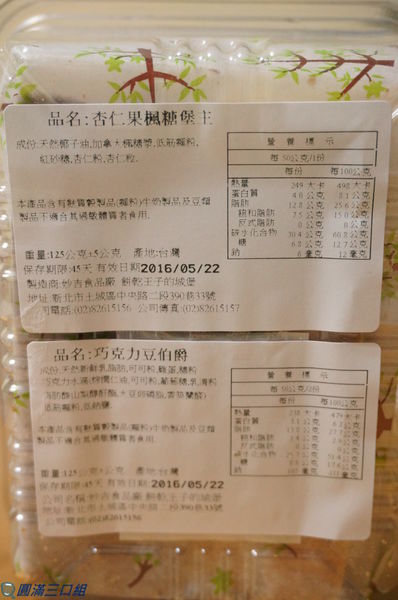 品名:杏仁果楓糖堡主
成份:天然椰子油,加拿大楓糖漿,低筋麵粉,
紅砂糖,杏仁粉,杏仁粒.
本產品含有麩質穀製品(麵粉)牛奶製品及豆類
製品不適合其過敏體質者食用.
重量:125公克±5公克 產地:台灣
保存期限:45天 有效日期2016/05/22
製造商:妙吉食品廠 餅乾王子的城堡
地址:新北市土城區中央路二段390巷33號
公司電話:(02)82615156 公司傳真:(02)82615157
營養標示
每50公克/1份
每份 每100公克
熱量 249 大卡 498 大卡
蛋白質 4.0 公克 8.1 公克
脂肪 12.8 公克 25.6 公克
飽和脂肪 7.5 公克 15.0 公克
反式脂肪 0 公克 0 公克
碳水化合物 30.4 公克 60.8 公克
糖 6.4 公克 12.7 公克
鈉 6 毫克 12 毫克
品名:巧克力豆伯爵
成份:天然新鮮乳脂肪,可可粉,雞蛋,糖粉
本產品含有麩質穀製品(麵粉)牛奶製品及豆類
製品不適合其過敏體質者食用.
重量:125公克±5公克 產地:台灣
保存期限:45天 有效日期2016/05/22
公司名稱:妙吉食品廠 餅乾王子的城堡
地址:新北市土城區中央路二段390巷33號
公司電話:(02)82615156
營養標示
每份 每100公克
熱量 大卡 大卡
蛋白質 公克 公克
脂肪 公克 公克
飽和脂肪 公克 公克
反式脂肪 0 公克 0 公克
碳水化合物 公克 公克
糖 公克 公克
鈉 毫克 毫克
圓滿三口組